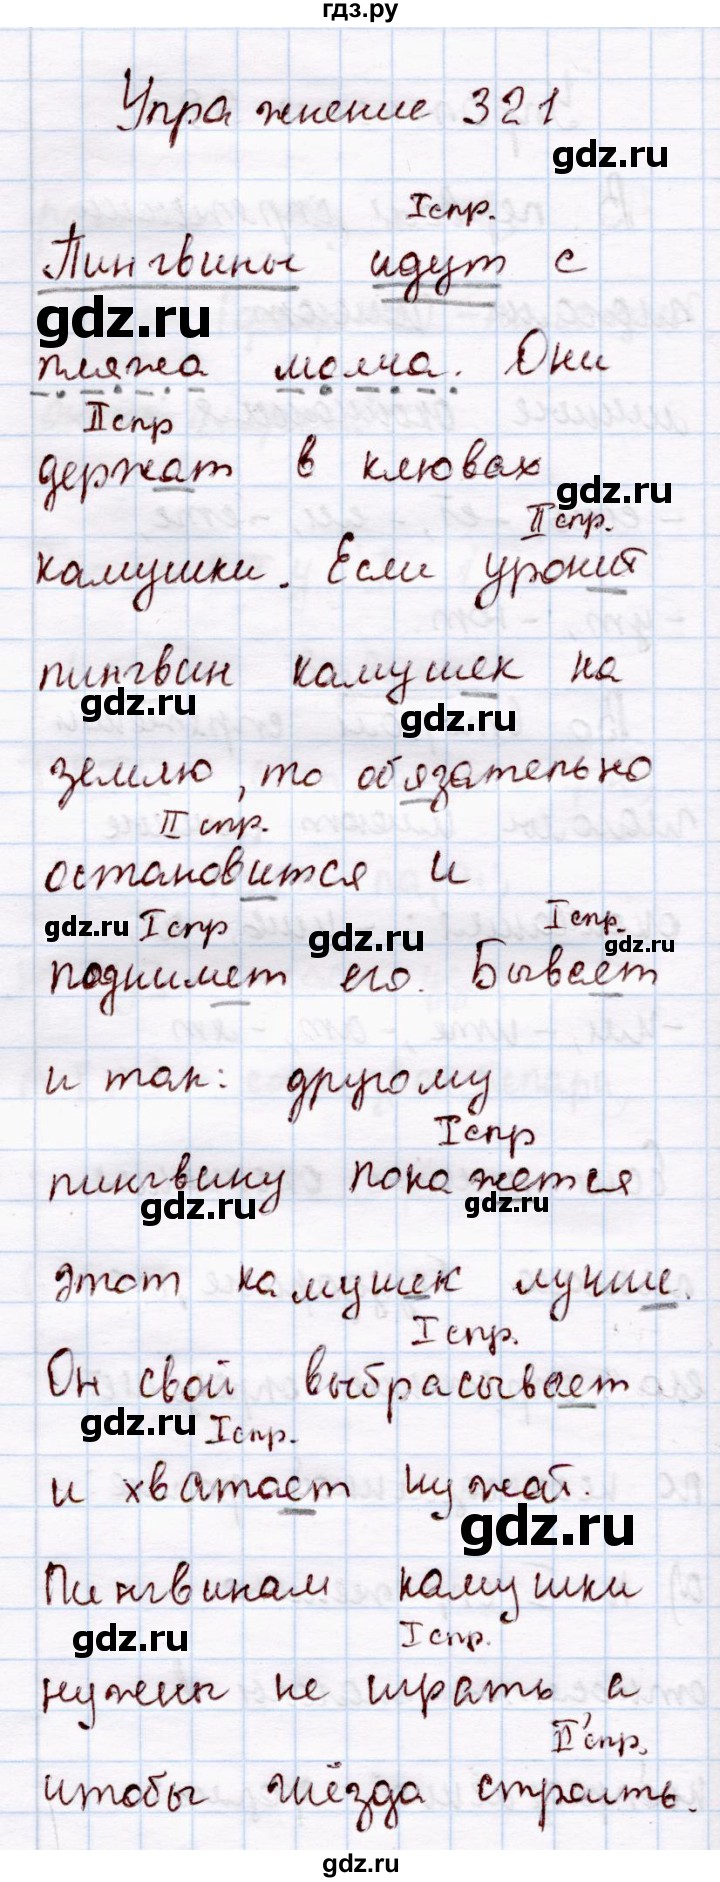 гдз.ру
Упражнение 321
gdz.ru
I спр.
Пингвины идут с
gdz.ru
пляжа молча. Они
II спр
держат в клювах
gdz.ru
II спр.
камушки. Если уронит
пингвин камушек на
gdz.ru
gdz.ru
землю, то обязательно
II спр.
остановится и
gdz.ru I спр gdz.ru I спр. gdz.ru
поднимет его. Бывает
и так: другому
I спр
пингвину покажется
gdz.ru gdz.ru
этот камушек лучше.
I спр.
Он свой выбрасывает
gdz.ru I спр.
и хватает чужой.
gdz.ru
Пингвинам камушки
gdz.ru I спр.
нужны не играть, а
II спр.
чтобы гнёзда строить.
gdz.ru